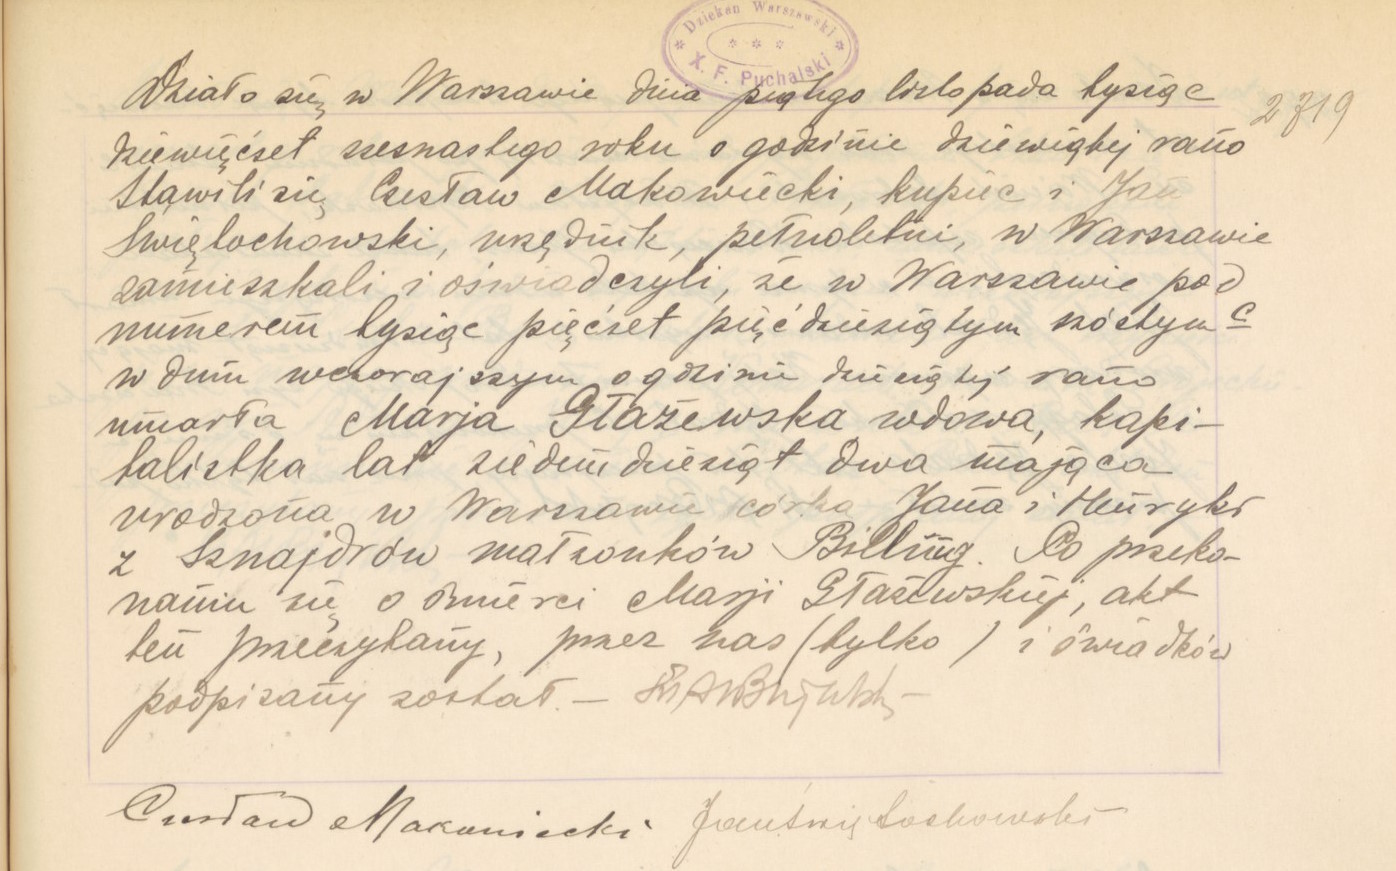 Dziekan Warszawski
X. F. Puchalski
Działo się w Warszawie dnia piątego listopada tysiąc
2719
dziewięćset szesnastego roku o godzinie dziewiątej rano
Stawili się Czesław Makowiecki, kupiec i Jan
Święłochowski, urzędnik, pełnoletni, w Warszawie
zamieszkali i oświadczyli, że w Warszawie pod
numerem tysiąc pięćset pięćdziesiątym szóstym c
w dniu wczorajszym o godzinie dziesiątej rano
umarła Marja Głażewska wdowa, kapi-
talistka lat siedemdziesiąt dwa mająca
urodzona w Warszawie córka Jana i Henryki
z Sznajdrów małżonków Billing. Po przeko-
naniu się o śmierci Marji Głażewskiej, akt
ten przeczytany, przez nas (tylko ) i świadków
podpisany został. —
Czesław Makowiecki Jan Święłochowski